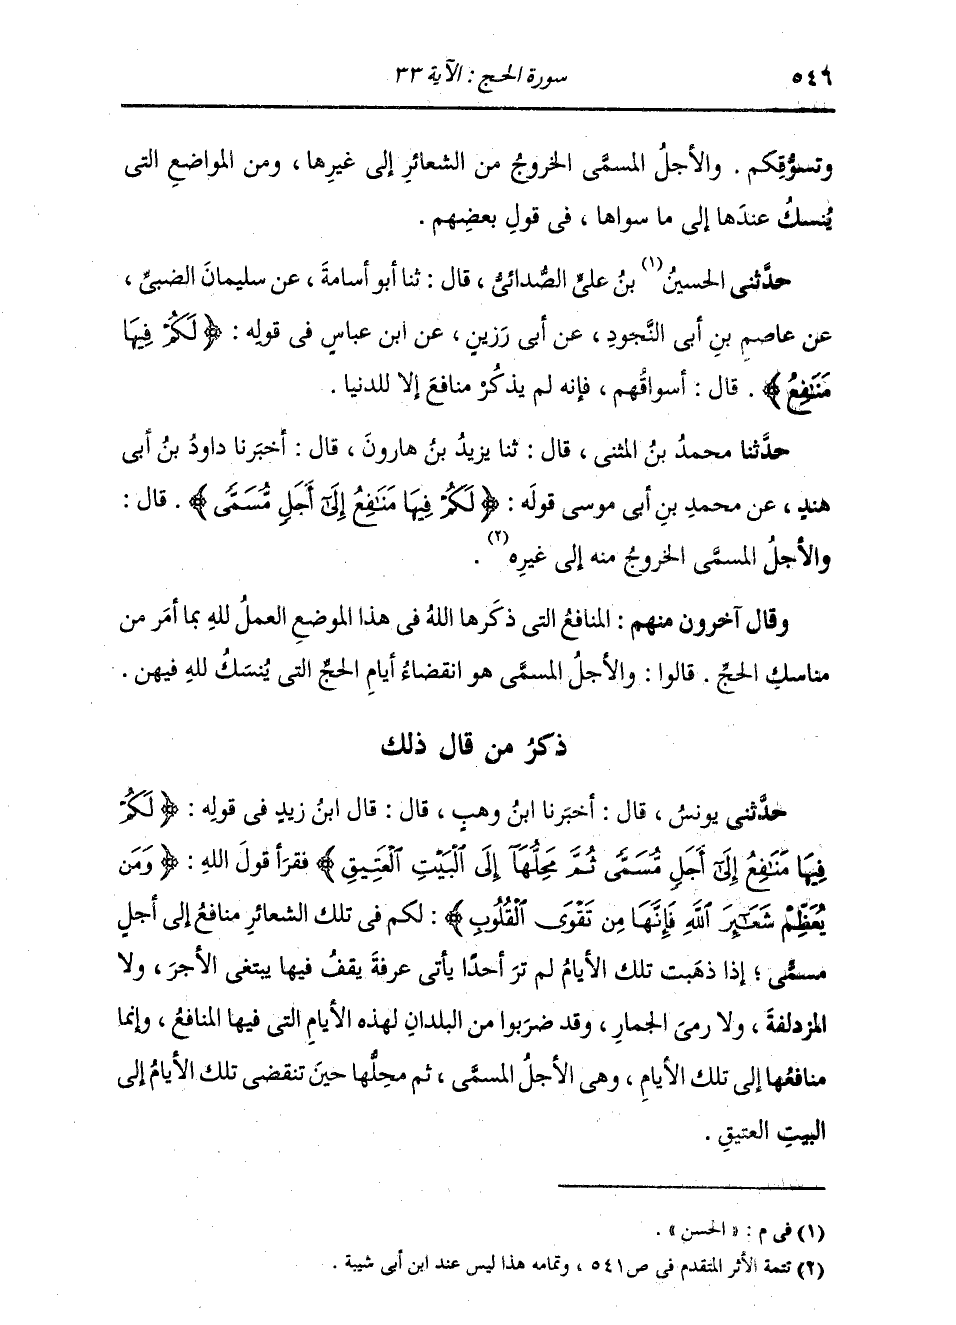 ٥٤٦ سورة الحج : الآية ٣٣
وتسوُّقِكم . والأجلُ المسمَّى الخروجُ من الشعائرِ إلى غيرِها ، ومن المواضعِ التى
يُنسكُ عندَها إلى ما سواها ، فى قولِ بعضِهم .
حدَّثنى الحسينُ(١) بنُ علىٍّ الصُّدائىُّ ، قال : ثنا أبو أسامةَ ، عن سليمانَ الضبىِّ ،
عن عاصمِ بنِ أبى النَّجودِ ، عن أبى رَزينٍ ، عن ابن عباسٍ فى قولِه : ﴿ لَكُمْ فِيهَا
مَنَٰفِعُ ﴾ . قال : أسواقُهم ، فإنه لم يذكُرْ منافعَ إلا للدنيا .
حدَّثنا محمدُ بنُ المثنى ، قال : ثنا يزيدُ بنُ هارونَ ، قال : أخبَرنا داودُ بنُ أبى
هندٍ ، عن محمدِ بنِ أبى موسى قولَه : ﴿ لَكُمْ فِيهَا مَنَٰفِعُ إِلَىٰٓ أَجَلٍ مُّسَمًّى ﴾ . قال :
والأجلُ المسمَّى الخروجُ منه إلى غيرِه(٢) .
وقال آخرون منهم : المنافعُ التى ذكَرها اللهُ فى هذا الموضعِ العملُ للهِ بما أمَر من
مناسكِ الحجِّ . قالوا : والأجلُ المسمَّى هو انقضاءُ أيامِ الحجِّ التى يُنسَكُ للهِ فيهن .
ذكرُ من قال ذلك
حدَّثنى يونسُ ، قال : أخبَرنا ابنُ وهبٍ ، قال : قال ابنُ زيدٍ فى قولِه : ﴿ لَكُمْ
فِيهَا مَنَٰفِعُ إِلَىٰٓ أَجَلٍ مُّسَمًّى ثُمَّ مَحِلُّهَآ إِلَى ٱلْبَيْتِ ٱلْعَتِيقِ ﴾ فقرَأ قولَ اللهِ : ﴿ وَمَن
يُعَظِّمْ شَعَٰٓئِرَ ٱللَّهِ فَإِنَّهَا مِن تَقْوَى ٱلْقُلُوبِ ﴾ : لكم فى تلك الشعائرِ منافعُ إلى أجلٍ
مسمًّى ؛ إذا ذهَبت تلك الأيامُ لم ترَ أحدًا يأتى عرفةَ يقفُ فيها يبتغى الأجرَ ، ولا
المزدلفةَ ، ولا رمىَ الجمارِ ، وقد ضرَبوا من البلدانِ لهذه الأيامِ التى فيها المنافعُ ، وإنما
منافعُها إلى تلك الأيامِ ، وهى الأجلُ المسمَّى ، ثم محِلُّها حينَ تنقضى تلك الأيامُ إلى
البيتِ العتيقِ .
(١) فى م : « الحسن » .
(٢) تتمة الأثر المتقدم فى ص ٥٤١ ، وتمامه هذا ليس عند ابن أبى شيبة .